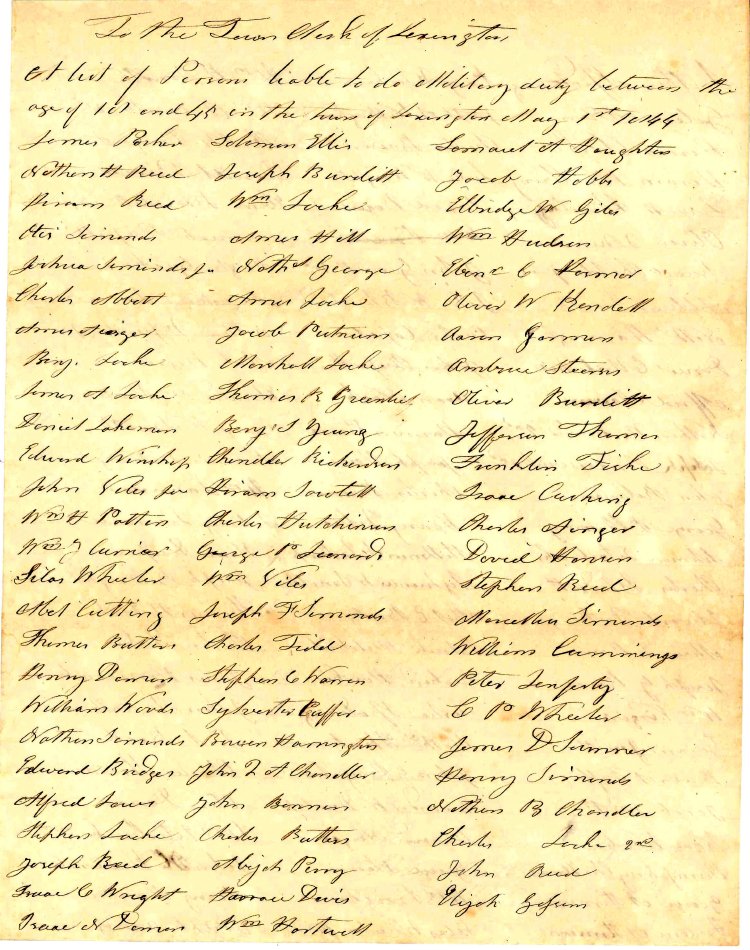 To the Town Clerk of Lexington
A list of Persons liable to do Military duty between the
age of 18 and 45 in the town of Lexington May 1st 1844
James Parker Solomon Ellis Samuel A Houghton
Nathan H Reed Joseph Burdett Jacob Hobbs
Hiram Reed Wm Locke Elbridge W Giles
Otis Simonds Amos Hill Wm Hudson
Joshua Simonds Jr Nathl George Ebenr C
Charles Abbott Amos Locke Oliver W Kendall
Amos Jacob Putnam Aaron Gorman
Benj. Locke Marshall Locke Ambrose Stearns
James A Locke Thomas R Greenlief Oliver Burditt
Daniel Lakeman Benj S Young Jefferson Thomas
Edward Winship Chandler Richardson Franklin Fiske
John Viles Jur Hiram Sawtell Isaac Cushing
Wm H Patten Charles Hutchinson Charles
Wm J Currier George P Leonards David Hanson
Silas Wheeler Wm Viles Stephen Reed
Abel Cutting Joseph F Simonds Marcellus Simonds
Thomas Butters Charles Tidd William Cummings
Henry Damon Stephen C Warren Peter
William Woods Sylvester C P Wheeler
Nathan Simonds Bowen Harrington James D Sumner
Edward Bridges John L A Chandler Henry Simonds
Alfred John Nathan B Chandler
Stephen Locke Charles Butters Charles Locke 2nd
Joseph Reed Abijah Perry John Reed
Isaac C Wright Horrace Davis Elijah
Isaac N Damon Wm Hartwell